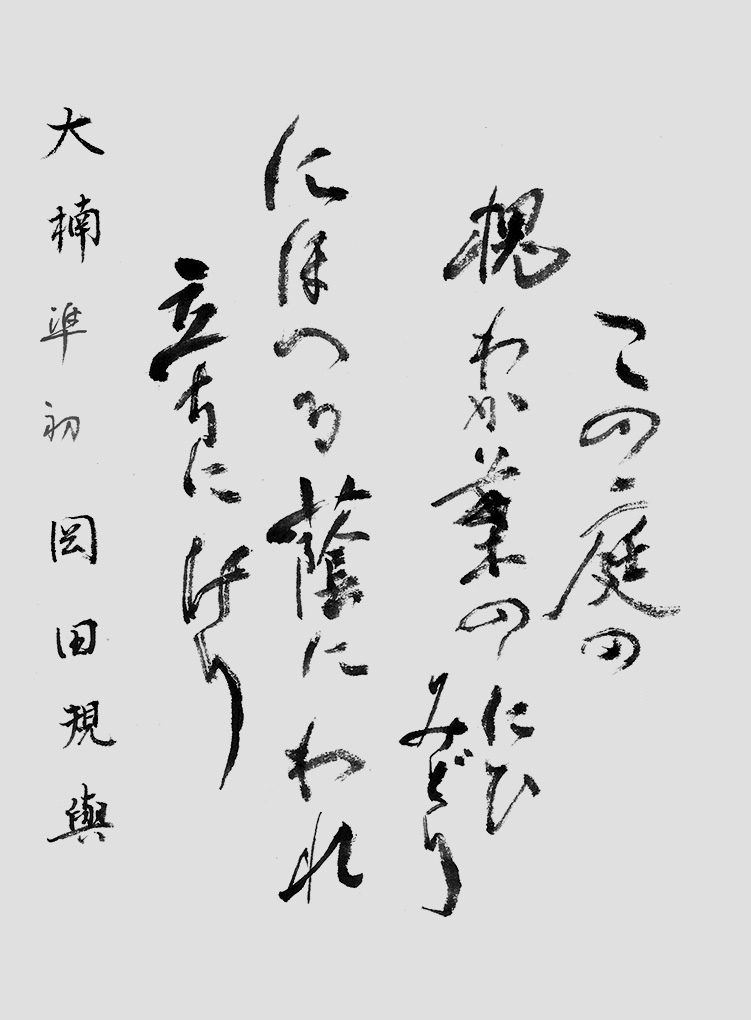 この庭の
槐わか葉のにひ
みどり
にほへる蔭にわれ
立ちにけり
大楠準初 岡田規與